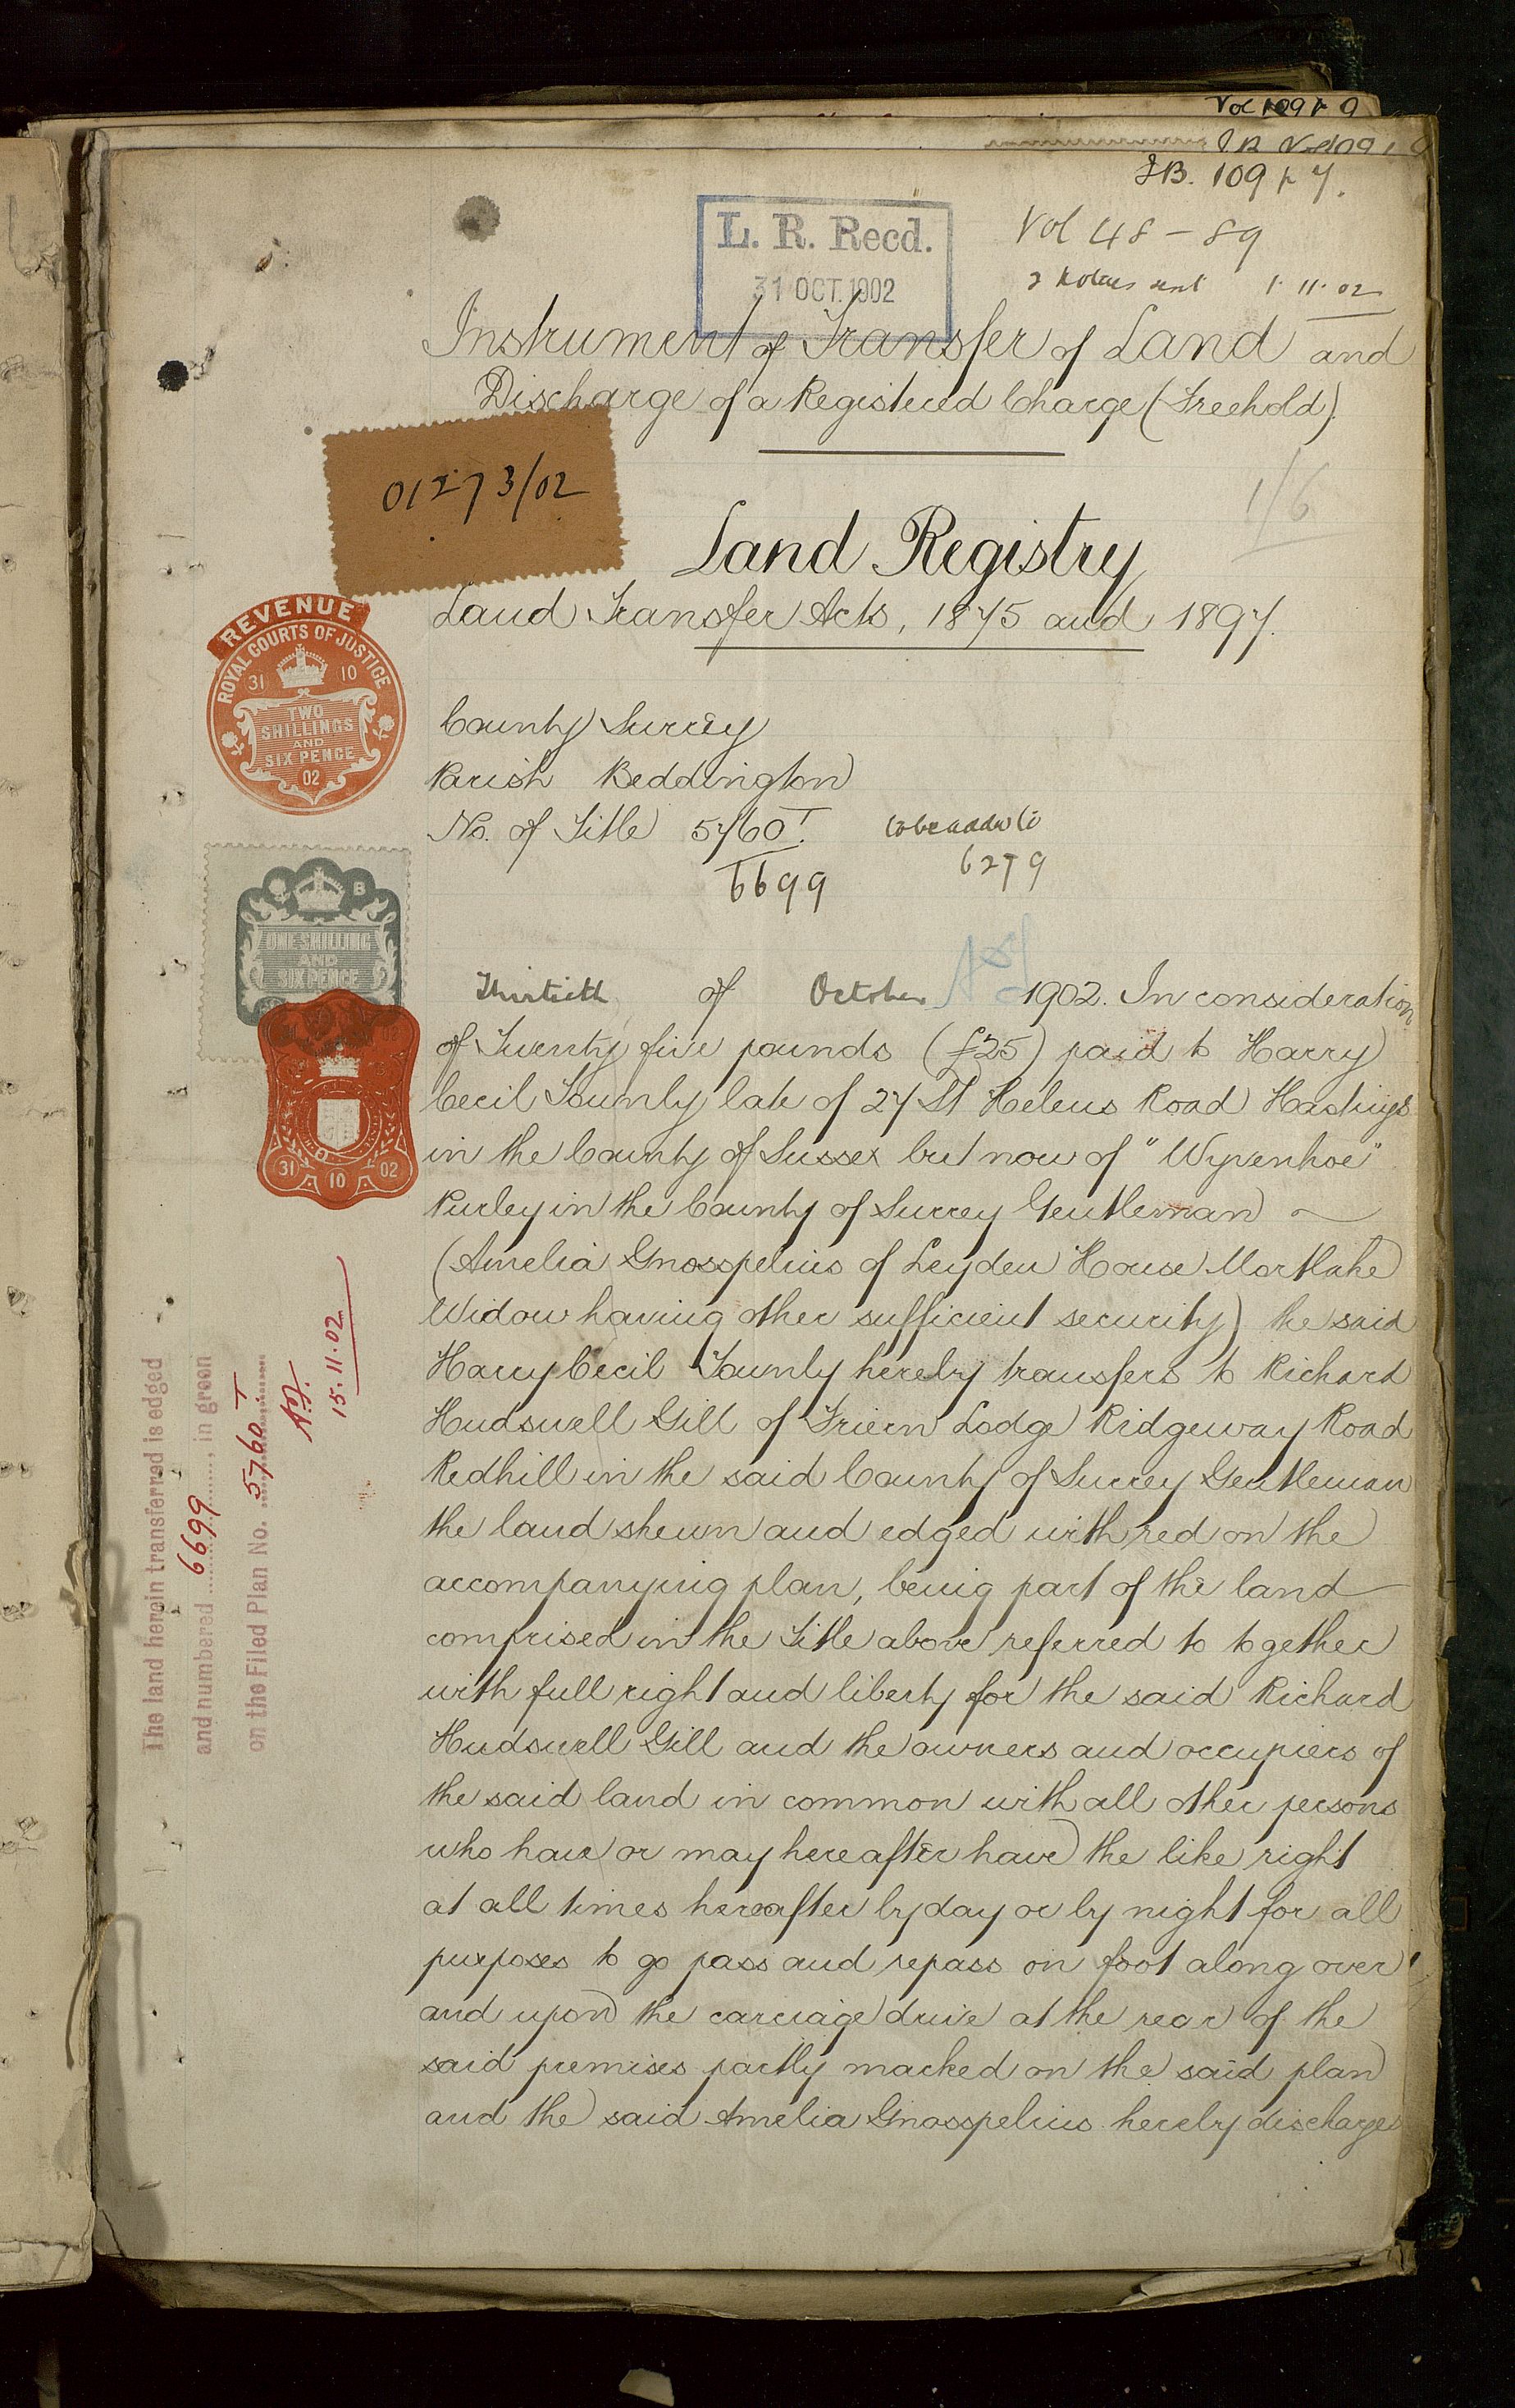 Vol 109 p 9
JB. 109 p 7.
L. R. Recd.
31 OCT. 1902
Vol 48 - 89
1. 11. 02
Instrument of Transfer of Land and
Discharge of a Registered Charge (Freehold).
01273/02
1/6
Land Registry
Land Transfer Acts, 1875 and 1897.
REVENUE
ROYAL COURTS OF JUSTICE
31 10
TWO
SHILLINGS
AND
SIX PENCE
02
County Surrey
Parish Beddington
No. of Title 5760 T.
to be added to
6279
6699
B
ONE SHILLING
AND
SIX PENCE
31 10 02
Thirtieth of October 1902. In consideration
of Twenty five pounds (£25) paid to Harry
Cecil Tounly late of 27 St Helens Road Hastings
in the County of Sussex but now of "Wyvenhoe"
Purley in the County of Surrey Gentleman
(Amelia Gnosspelius of Leyden House Mortlake
Widow having other sufficient security) the said
Harry Cecil Tounly hereby transfers to Richard
Hudswell Gill of Friern Lodge Ridgeway Road
Redhill in the said County of Surrey Gentleman
the land shewn and edged with red on the
accompanying plan, being part of the land
comprised in the Title above referred to together
with full right and liberty for the said Richard
Hudswell Gill and the owners and occupiers of
the said land in common with all other persons
who have or may hereafter have the like right
at all times hereafter by day or by night for all
purposes to go pass and repass on foot along over
and upon the carriage drive at the rear of the
said premises partly marked on the said plan
and the said Amelia Gnosspelius hereby discharges
The land herein transferred is edged
and numbered 6699, in green
on the Filed Plan No. 5760 T
15. 11. 02